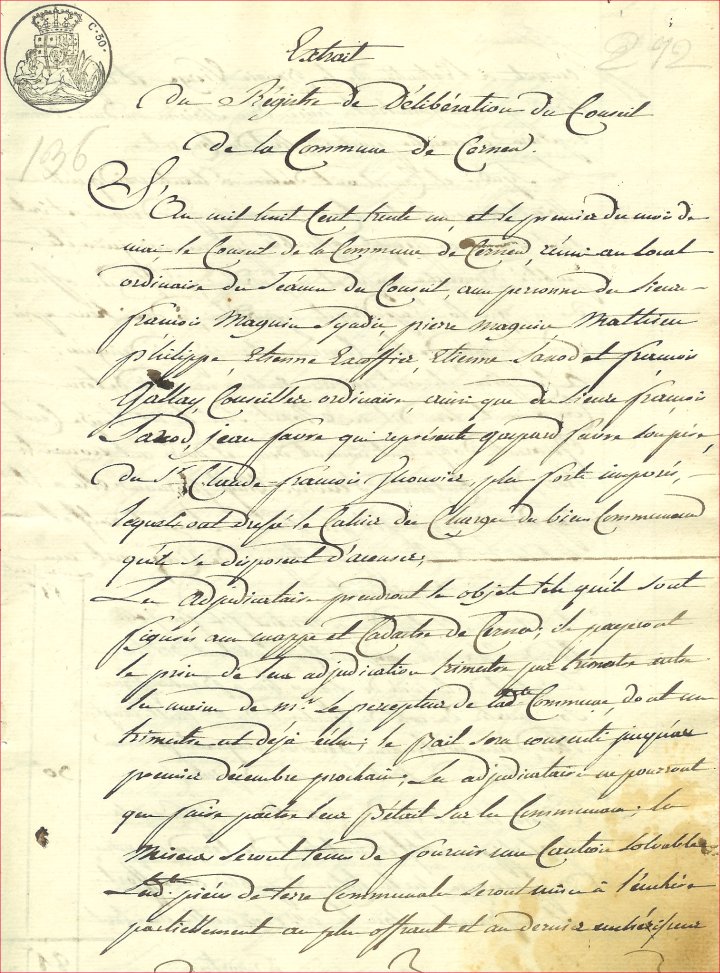 C. 50.
292
Extrait
du Régistre de Délibération du Conseil
de la Commune de Corned.
136
L'An mil huit Cent trente un, et le premier du mois de
mai le Conseil de la Commune de Cerned, réuni au local
ordinaire des Séances du Conseil, aux personnes des Sieurs
françois Magnin Syndic, pierre magnin Mathieu
philippe, Etienne Excoffier, Etienne Sanod et françois
Gallay, Conseillers ordinaires, ainsi que des Sieurs françois
jean favre qui représente gaspard favre son père,
du Sr Claude-françois plus forts imposés,
lequels ont dressé le Cahier des Charges des biens Communaux
qu'ils se disposent d'acenser;
Les adjudicataires prendront les objets tels qu'ils sont
figurés aux mappe et Cadastre de Cerned; ils payeront
le prix de leur adjudication trimestre par trimestre entre
les mains de mr. le percepteur de ladte Commune, dont un
trimestre est déjà échu; le Bail sera consenti jusqu'au
premier décembre prochain; Les adjudicataires ne pourront
que faire paître leur Bétail sur les Communaux; les
Miseurs seront tenus de fournir une Caution solvable
Lesdtes pièces de terre Communale seront mises à l'enchère
partiellement au plus offrant et au dernier enchérisseur